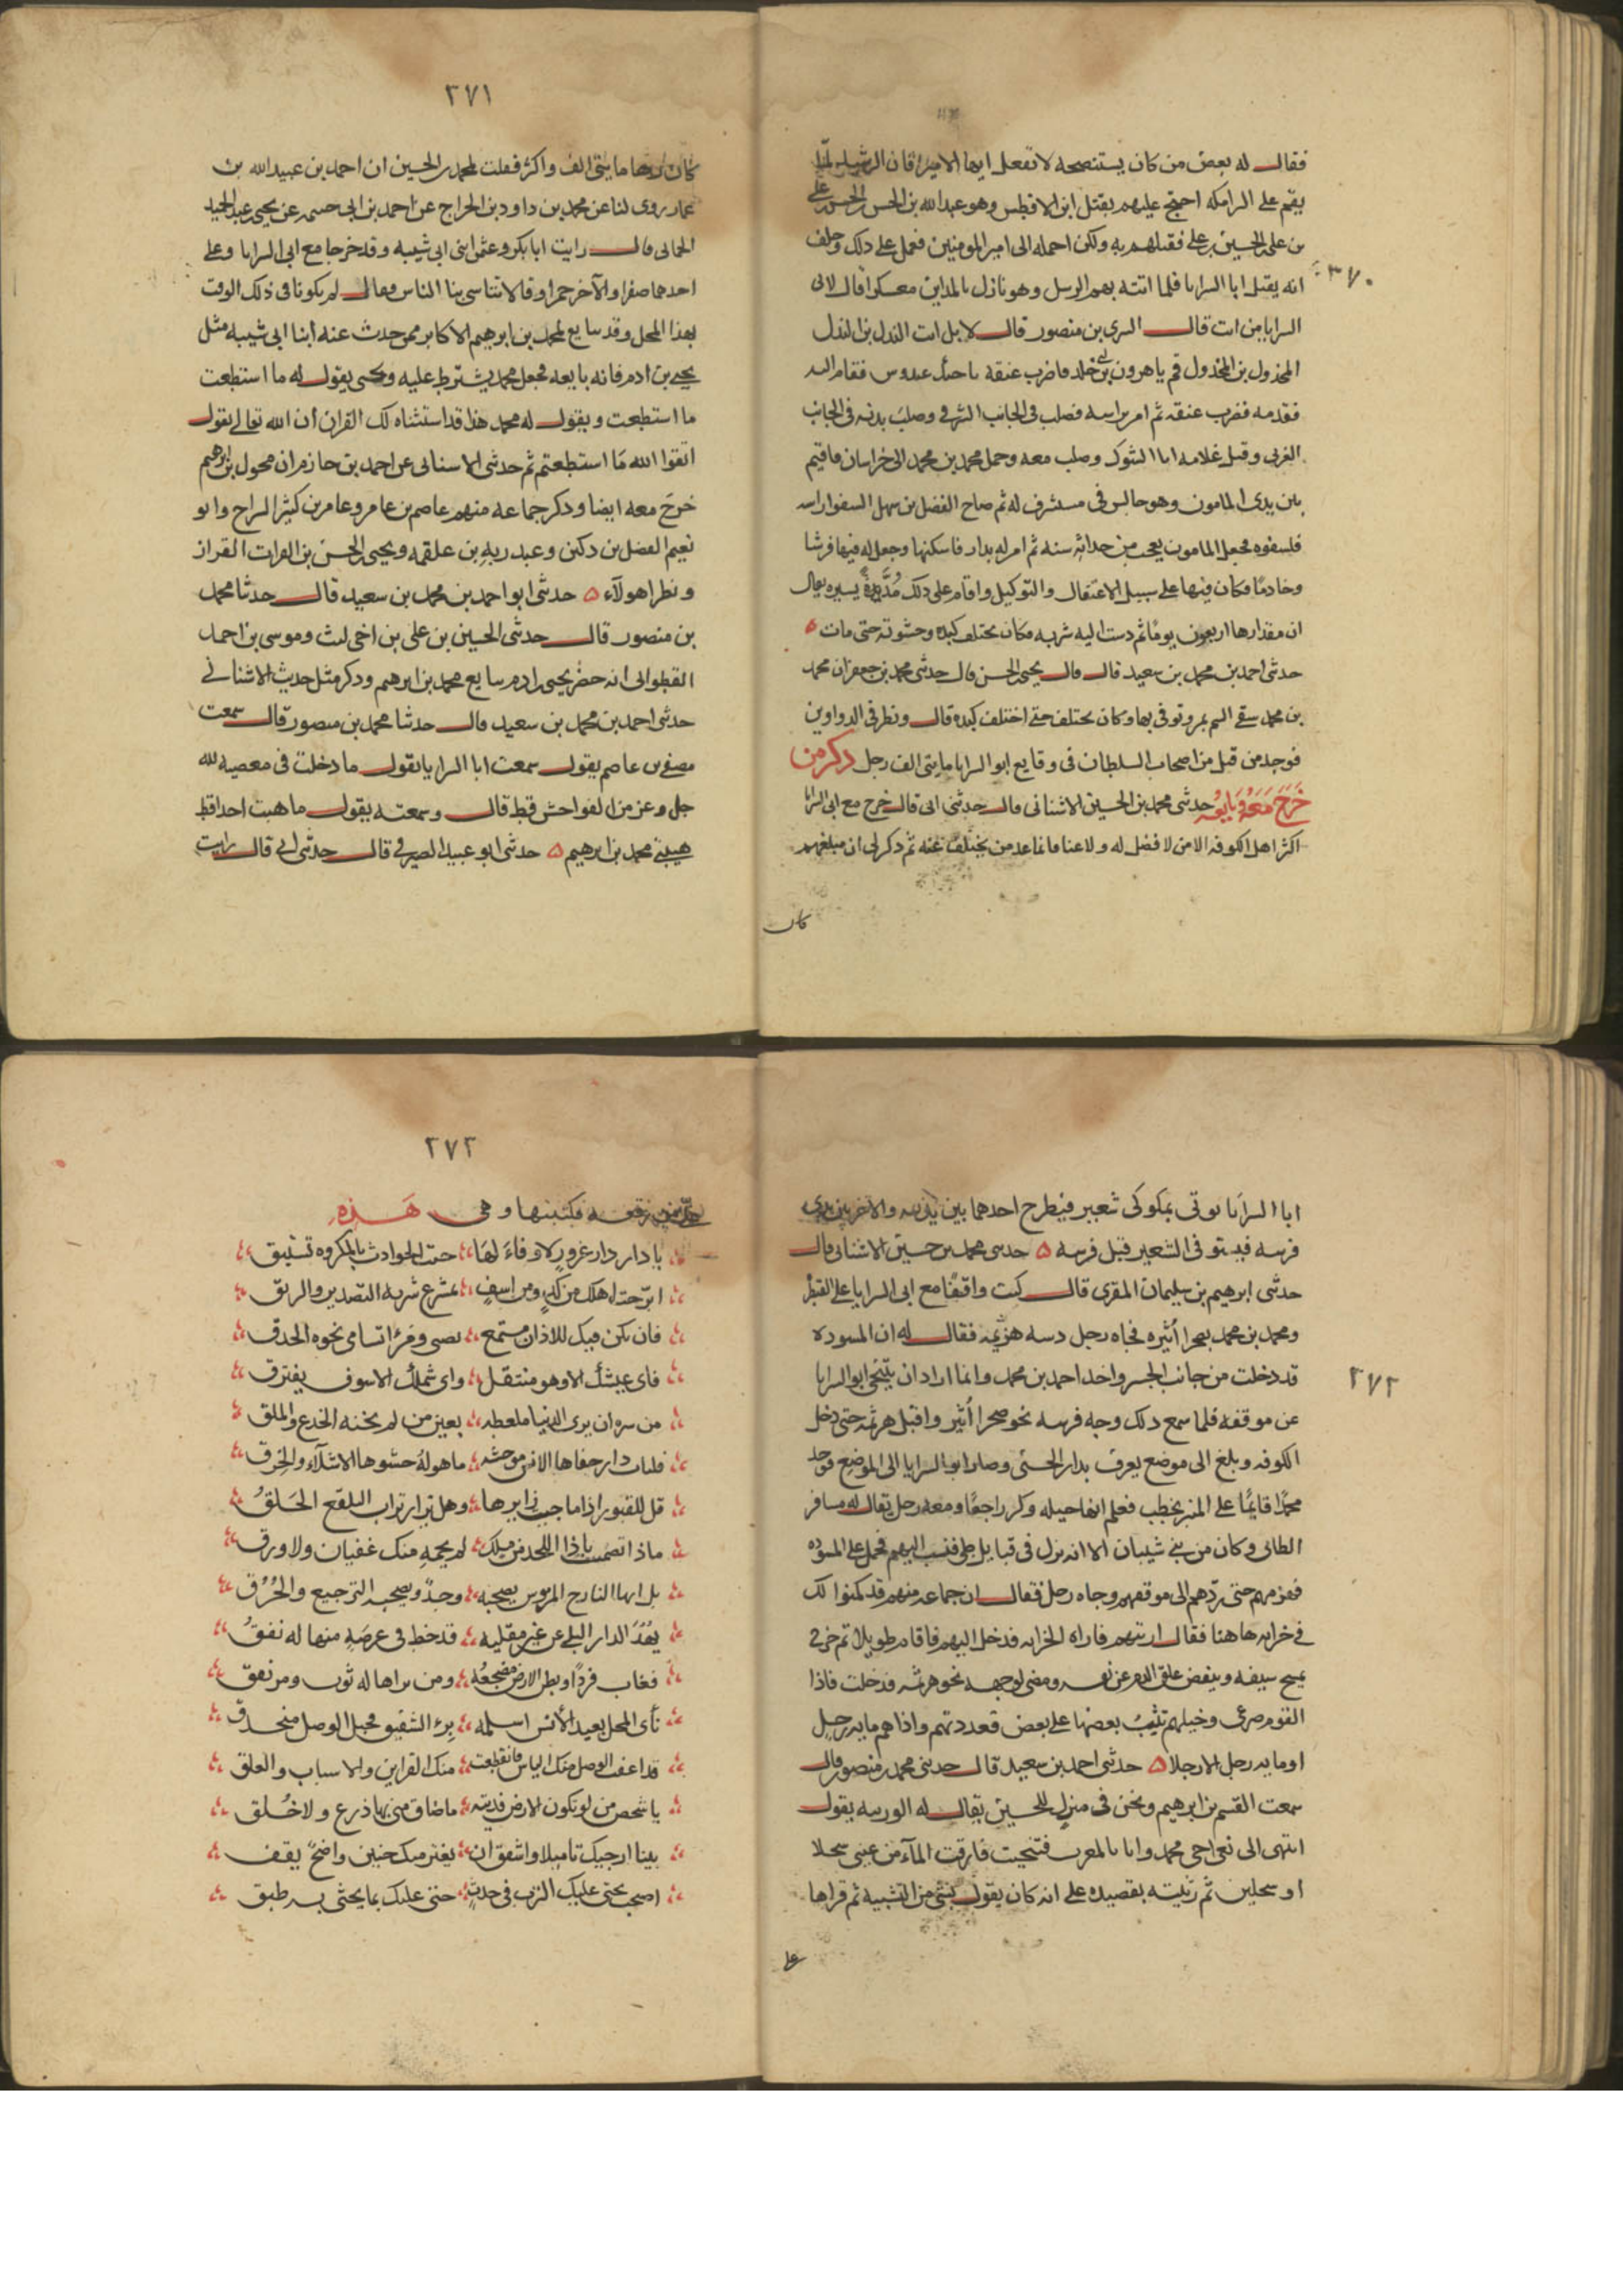 فقال له بعض من كان يستنصحه لا تفعل ايها الامير فان الرشيد لما
يقم على البرامكه احتج عليهم بقتل ابن الافطس وهو عبدالله بن الحسن بن الحسن بن على
بن على بن الحسين بن على فقتلهم به ولكن احمله الى امير المومنين فعمل على ذلك وحلف
٣٧٠
انه يقتل ابا السرايا فلما اتته بهم الرسل وهو نازل بالمداين معسكرا قال لابى
السرايا من انت قال السرى بن منصور قال لا بل انت النذل بن النذل
المخذول بن المخذول قم يا هرون بن ابى خلد فاضرب عنقه باخيك عبدوس فقام اليه
فقدمه فضرب عنقه ثم امر براسه فصلب فى الجانب الشرقى وصلب بدنه فى الجانب
الغربى وقتل غلامه ابا الشوك وصلب معه وحمل محمد بن محمد الى خراسان فاقيم
بين يدى المامون وهو جالس فى مستشرف له ثم صاح الفضل بن سهل اكشفوا راسه
فكشفوه فجعل المامون يعجب من حداثة سنه ثم امر له بدار فاسكنها وجعل له فيها فرشا
وخادما فكان فيها على سبيل الاعتقال والتوكيل واقام على ذلك مُدَيدة يسيره يقال
ان مقدارها اربعون يوما ثم دست اليه شربه فكان يختلف كبده وحشوته حتى مات ٥
حدثنى احمد بن محمد بن سعيد قال قال يحيى بن الحسن قال حدثنى محمد بن جعفر ان محمد
بن محمد سقى السم بمرو توفى بها وكان يختلف حتى اختلف كبده قال ونظر فى الدواوين
فوجد من قتل من اصحاب السلطان فى وقايع ابو السرايا مايتى الف رجل ذكر من
خَرَجَ مَعَهُ وَبَايَعَهُ حدثنى محمد بن الحسين الاشنانى قال حدثنى ابى قال خرج مع ابى السرايا
اكثر اهل الكوفه الا من لا فضل له ولا غنا فانما عد من يختلف عنه ثم ذكر لى ان مبلغهم
كان
٣٧١
كان مايتى الف واكثر فقلت لمحمد بن الحسين ان احمد بن عبيدالله بن
عمار روى لنا عن محمد بن داود بن الجراح عن احمد بن ابى خيثمه عن يحيى بن عبدالحميد
الحمانى قال رايت ابا بكر وعثمن ابنى ابى شيبه وقد خرجا مع ابى السرايا وعلى
احدهما صفرا والآخر حمرا وقالا نتاسى بنا الناس فقال لم يكونا فى ذلك الوقت
بهذا المحل وقد بايع لمحمد بن ابرهيم الاكابر ممن حدث عنه ابنا ابى شيبه مثل
يحيى بن ادم فانه بايعه فجعل محمد يشترط عليه ويحيى يقول له ما استطعت
ما استطعت ويقول له محمد هذا قد استثناه لك القران ان الله تعالى يقول
اتقوا الله مَا استطعتم ثم حدثنى الاشنانى عن احمد بن حازم ان مخول بن ابرهيم
خرج معه ايضا وذكر جماعه منهم عاصم بن عامر وعامر بن كثير السراج وابو
نعيم الفضل بن دكين وعبد ربه بن علقمه ويحيى بن الحسن بن الفرات القزاز
ونظرا هولاء ٥ حدثنى ابو احمد بن محمد بن سعيد قال حدثنا محمد
بن منصور قال حدثنى الحسين بن على بن اخى ليث وموسى بن احمد
القطوانى انه حضر يحيى بن ادم بايع محمد بن ابرهيم وذكر مثل حديث الاشنانى
حدثنى احمد بن محمد بن سعيد قال حدثنا محمد بن منصور قال سمعت
مصفى بن عاصم يقول سمعت ابا السرايا يقول ما دخلت فى معصيه لله
جل وعز من الفواحش قط قال وسمعته يقول ما هبت احدا قط
هيبتى محمد بن ابرهيم ٥ حدثنى ابو عبيد الصيرفى قال حدثنى ابى قال رايت
ابا السرايا يوتى بمكوكى شعير فيطرح احدهما بين يديه والاخر بين يدى
فرسه فيستوفى الشعير قبل فرسه ٥ حدثنى محمد بن حسين الاشنانى قال
حدثنى ابرهيم بن سليمان المقرى قال كنت واقفا مع ابى السرايا على القنطره
ومحمد بن محمد بصحرا أثير فجاه رجل دسه هرثمه فقال له ان المسوده
٣٧٢
قد دخلت من جانب الجسر واخذ احمد بن محمد وانما اراد ان يتنحى ابو السرايا
عن موقفه فلما سمع ذلك وجه فرسه نحو صحرا أثير واقبل هرثمه حتى دخل
الكوفه وبلغ الى موضع يعرف بدار الحسنى وصار ابو السرايا الى الموضع فوجد
محمدا قايما على المنبر يخطب فعلم انها حيله وكر راجعا ومعه رجل يقال له مسافر
الطائى وكان من بنى شيبان الا انه نزل فى قبايل طى فنسب اليهم فحمل على المسوده
فهزمهم حتى ردهم الى موقفهم وجاه رجل فقال ان جماعه منهم قد كمنوا لك
فى خرابه هاهنا فقال ارنيهم فاراه الخرابه فدخل اليهم فاقام طويلا ثم خرج
يمسح سيفه وينفض علق الدم عن نفسه ومضى لوجهه نحو هرثمه فدخلت فاذا
القوم صرعى وخيلهم تثب بعضها على بعض فعددتهم واذا هم مايه رجل
او مايه رجل الا رجلا ٥ حدثنى احمد بن سعيد قال حدثنى محمد بن منصور قال
سمعت القسم بن ابرهيم ونحن فى منزل للحسين يقال له الورينه يقول
انتهى الى نعى اخى محمد وانا بالمغرب فتنحيت فارقت المآء من عينى سجلا
او سجلين ثم رثيته بقصيده على انه كان يقول بشى من التشبيه ثم قراها
على
٢٧٢
على من رقعه فكتبتها وهى هَـذِهِ
يا دار دار غرور لا وفاءَ لهَا حيث الحوادث بالمكروه تستبق
ابرحت اهلك من كد ومن اسفٍ بمشرع شربه التصدير والرنق
فان يكن فيك للاذان مستمع يصبى ومرءا تسامى نحوه الحدق
فاى عيشك الا وهو منتقل واى شملك الا سوف يفترق
من سره ان يرى الدنيا معطله بعين من لم يخنه الخدع والملق
فليات دار جفاها الانس موحشه ماهولة حشوها الاشلآء والخرق
قل للقبور اذا ما جيت زايرها وهل تزار تراب البلقع الخَلقُ
ماذا تضمنت ياذا اللحد من ملك لم يحمه منك عقيان ولا ورق
بل ايها النازح المرموس يصحبه وجدٌ ويصحبه الترجيع والحُرَق
يُهْدَ الدار البلى عن غير مقليه قد خط فى عرصَةٍ منها له نفق
فغاب فردًا وبطن الارض مضجعُه ومن ثراها له ثوب ومرتفق
نأى المحل بعيد الأنس اسلمه بِرّ الشفيق فحبل الوصل منحذق
قد اعقب الوصل منك الياس فانقطعت منك القراين والاسباب والعلق
يا شخص من لو تكون الارض فديته ما ضاق منى بها ذرع ولا خُلق
بينا ارجيك تاميلا واشفق ان يغتر منك جبين واضحٌ يقق
اصبحت يحثى عليك الترب فى جدث حتى عليك بما يحثى به طبق